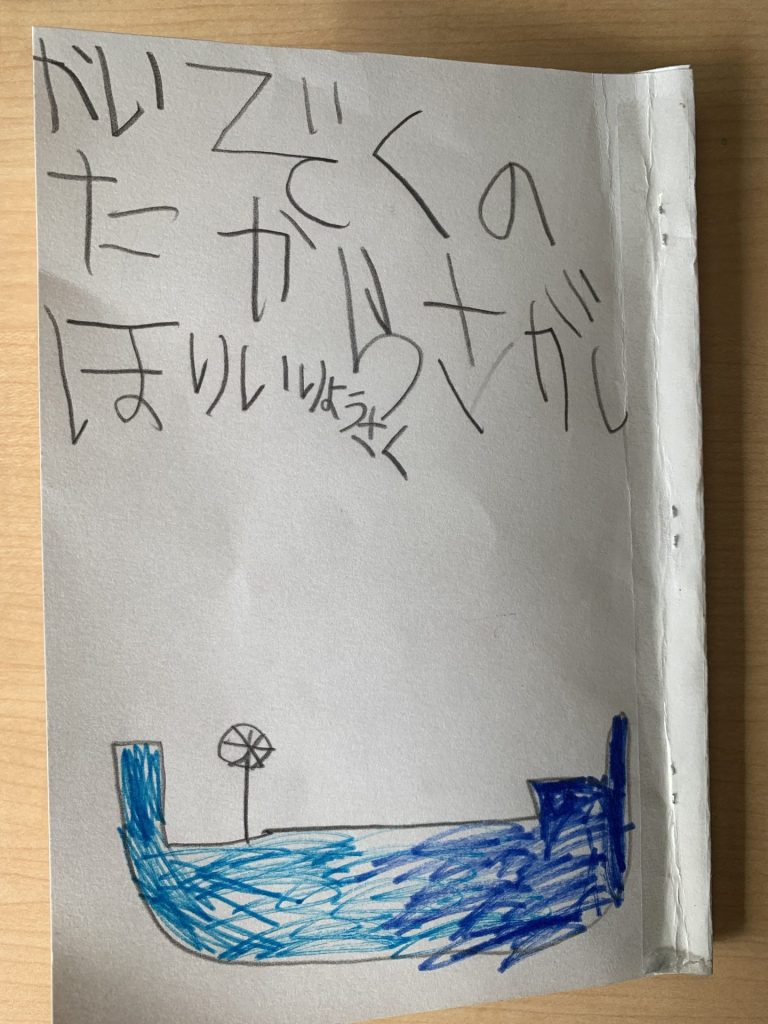 かいぞくの
たからさがし
ほりいりょうさく